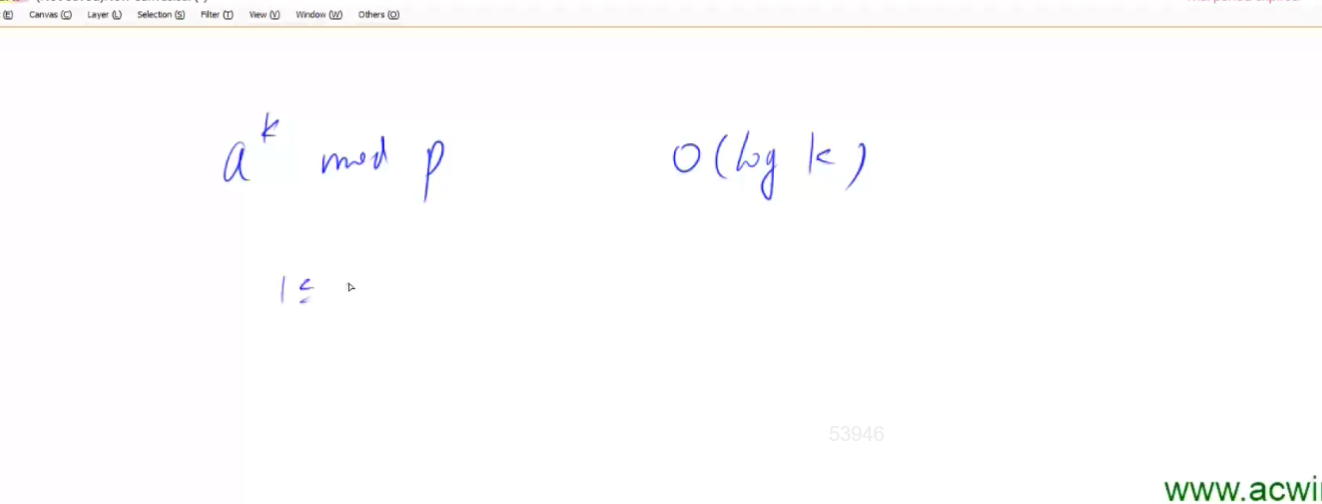 (E) Canvas (C) Layer (L) Selection (S) Filter (T) View (V) Window (W) Others (O)
a^k mod p O(log k)
1 ≤
53946
www.acwi